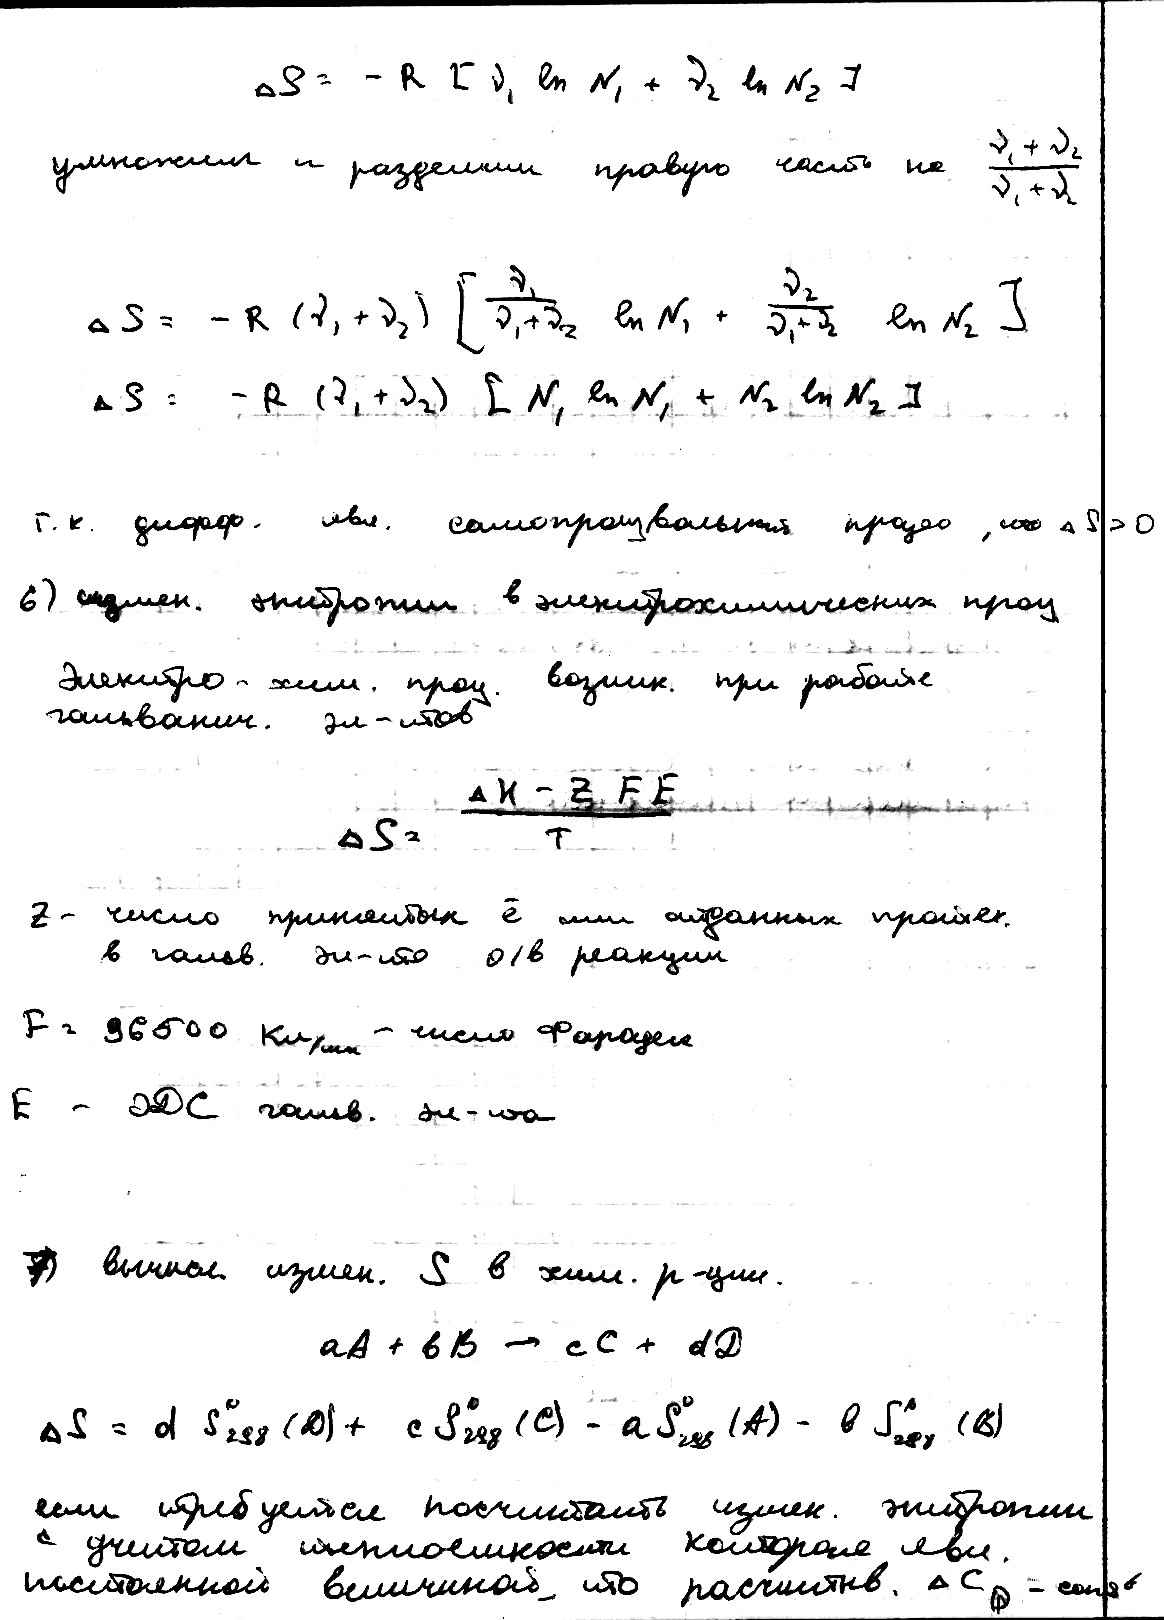 ΔS = - R [ ν₁ ln N₁ + ν₂ ln N₂ ]
умножим и разделим правую часть на (ν₁ + ν₂)/(ν₁ + ν₂)
ΔS = - R (ν₁ + ν₂) [ ν₁/(ν₁+ν₂) ln N₁ + ν₂/(ν₁+ν₂) ln N₂ ]
ΔS = - R (ν₁ + ν₂) [ N₁ ln N₁ + N₂ ln N₂ ]
т.к. дифф. явл. самопроизвольным , что ΔS > 0
6) измен. энтропии в электрохимических проц
Электро - хим. проц. возник. при работе
гальванич. эл-тов
ΔS = (ΔH - Z F E)/T
Z - число принятых ē или отданных протек.
в гальв. эл-те о/в реакции
F = 96500 Кл/ - число Фарадея
E - ЭДС гальв. эл-та
7) вычисл. измен. S в хим. р-ции.
aA + вB → cC + dD
ΔS = d S⁰₂₉₈ (D) + c S⁰₂₉₈ (C) - a S⁰₂₉₈ (A) - в S⁰₂₉₈ (B)
если требуется посчитать измен. энтропии
с учетом теплоемкости которая явл.
постоянной величиной, то расчитыв. ΔCp - const